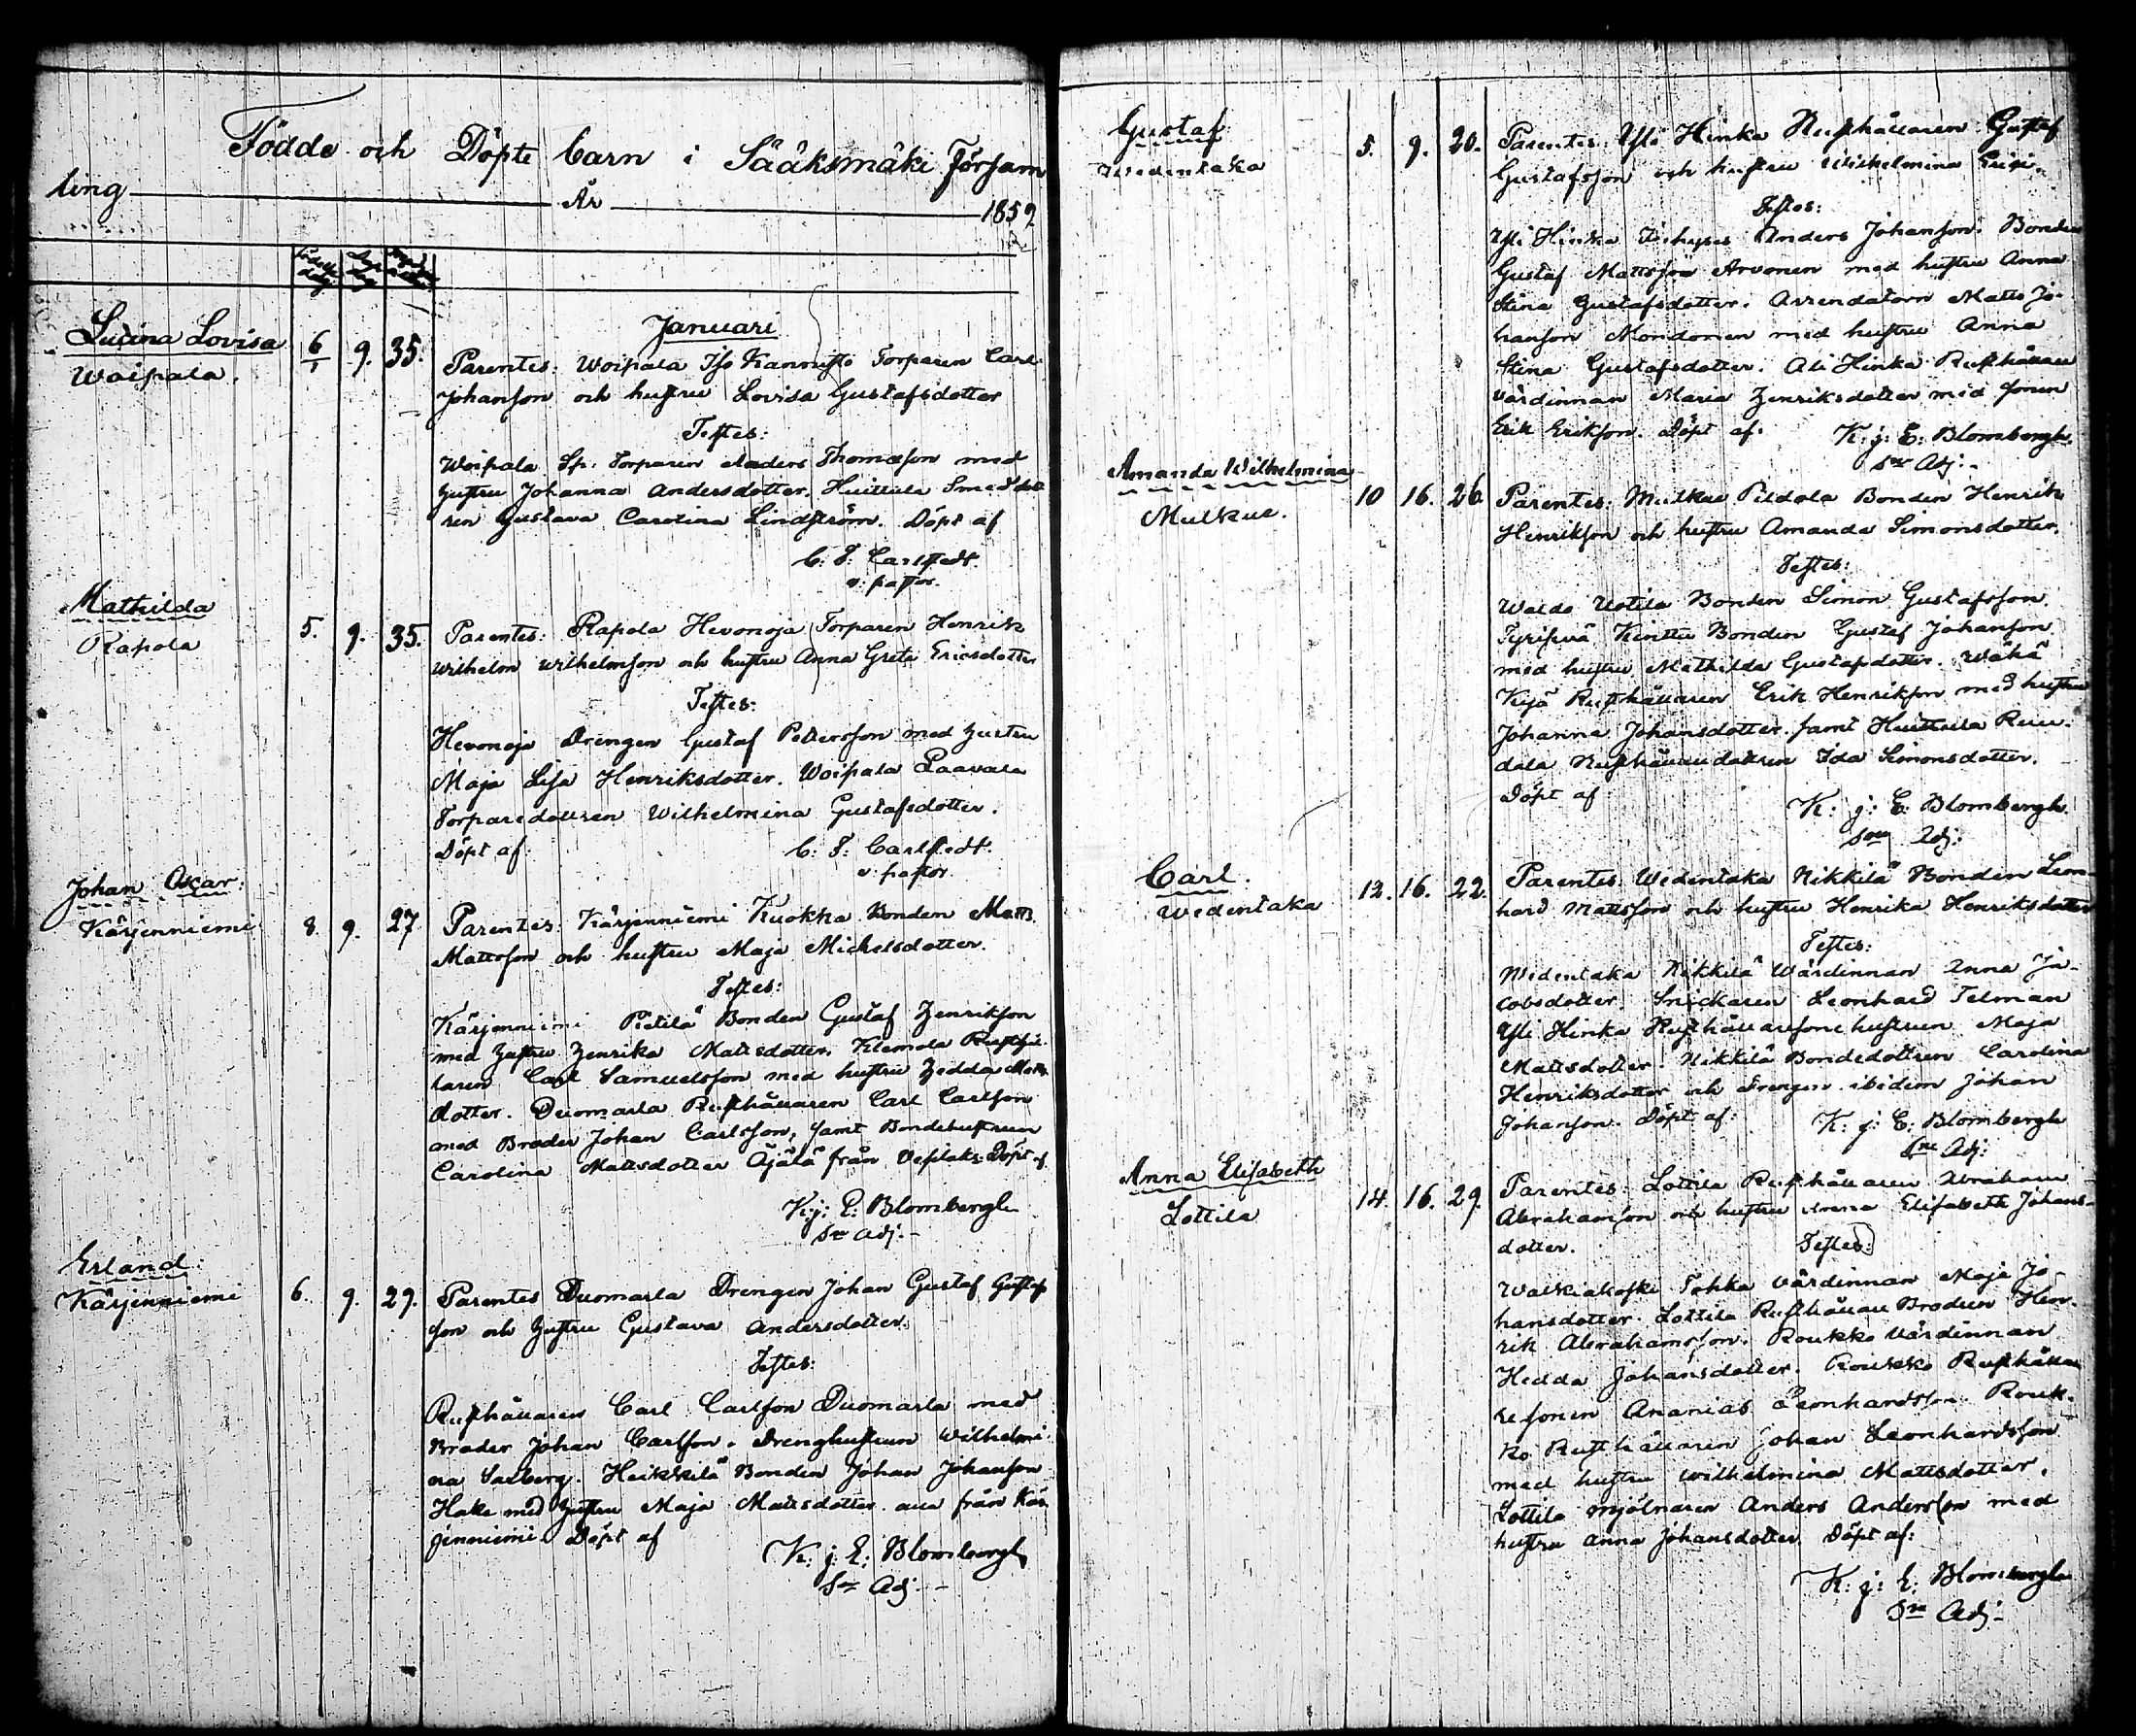 Födde och Döpte barn i Sääksmäki Försam
ling År 1859
Januari
Lucina Lovisa
Woipala.
6/1 9. 35.
Parentes: Woipala Iso Kannisto Torparen Carl
Johanson och hustru Lovisa Gustafsdotter
Testes:
Woipala Sp: Torparen Anders Thomason med
hustru Johanna Andersdotter. Huittula Smeddot
ren Gustava Carolina Lindström. Döpt af
C. F. Carlstedt.
v: pastor.
Mathilda
Rapola
5. 9. 35.
Parentes: Rapola Hevonoja Torparen Henrik
Wilhelm Wilhelmson och hustru Anna Greta Ericsdotter
Testes:
Hevonoja Drengen Gustaf Pettersson med hustru
Maja Lisa Henriksdotter. Woipala Laavala
Torparedottren Wilhelmina Gustafsdotter.
Döpt af
C. F. Carlstedt.
v: pastor.
Johan Oscar:
Kärjenniemi
8. 9. 27
Parentes: Kärjenniemi Kuokka Bonden Matts
Mattsson och hustru Maja Michelsdotter.
Testes:
Kärjenniemi Pietilä Bonden Gustaf Henrikson
med hustru Henrika Mattsdotter. Klemola Rusthål
laren Carl Samuelsson med hustru Hedda Matts
dotter. Duomarla Rusthållaren Carl Carlson
med Broder Johan Carlsson, samt Bondehustrun
Carolina Mattsdotter Äjälä från Vesilaks. Döpt af
K: j: E: Blombergh
Sne Adj:-
Erland:
Kärjenniemi
6. 9. 29.
Parentes Duomarla Drengen Johan Gustaf Gustaf
son och hustru Gustava Andersdotter.
Testes:
Rusthållaren Carl Carlson Duomarla med
Broder Johan Carlson. Drenghustrun Wilhelmi
na Saxberg. Heikkilä Bonden Johan Johanson
Hake med hustru Maja Mattsdotter alla från Kär
jenniemi. Döpt af
K: j: E: Blombergh
Sne Adj:-
Gustaf
Wedentaka
5. 9. 20.
Parentes: Yli Hinka Rusthållaren Gustaf
Gustafsson och hustru Wilhelmina
Testes:
Yli Hinka Anders Johanson. Bonden
Gustaf Mattsson Arvonen med hustru Anna
Stina Gustafsdotter. Arrendatorn Matts Jo-
hanson Mondonen med hustru Anna
Stina Gustafsdotter. Ali Hinka Rusthållare
värdinnan Maria Henriksdotter med sonen
Erik Erikson. Döpt af:
K: j: E: Blombergh.
Sne Adj:-
Amanda Wilhelmina
Mulkue.
10 16. 26.
Parentes: Mulkue Pildola Bonden Henrik
Henrikson och hustru Amanda Simonsdotter.
Testes:
Waldo Uotila Bonden Simon Gustafsson.
Tyrisevä Kinttu Bonden Gustaf Johanson
med hustru Mathilda Gustafsdotter. Wähä
Kyjä Rusthållaren Erik Henrikson med hustru
Johanna Johansdotter samt Huittula Ruu-
dala Rusthållaredottren Ida Simonsdotter.
Döpt af
K: j: E: Blombergh.
Sne Adj:
Carl.
Wedentaka
12. 16. 22.
Parentes: Wedentaka Nikkilä Bonden Leon-
hard Mattsson och hustru Henrika Henriksdotter
Testes:
Wedentaka Nikkilä Wärdinnan Anna Ja-
cobsdotter. Snickaren Leonhard Telman
Yli Hinka Rusthållaresone hustrun Maja
Mattsdotter. Nikkilä Bondedottren Carolina
Henriksdotter och Drengen ibidem Johan
Johanson. Döpt af:
K: j: E: Blombergh
Sne Adj:
Anna Elisabeth
Lottila
14. 16. 29.
Parentes: Lottila Rusthållaren Abraham
Abrahamson och hustru Anna Elisabeth Johans-
dotter.
Testes:
Walkiakoski Tohka värdinnan Maja Jo-
hansdotter. Lottila Rusthållare Brodren Hen-
rik Abrahamsson. Roukko värdinnan
Hedda Johansdotter. Roukko Rusthålla
resonen Ananias Leonhardsson Rouk-
ko Rusthållaren Johan Leonhardsson
med hustru Wilhelmina Mattsdotter.
Lottila mjölnaren Anders Anderson med
hustru Anna Johansdotter Döpt af:
K: j: E: Blombergh
Sne Adj:-